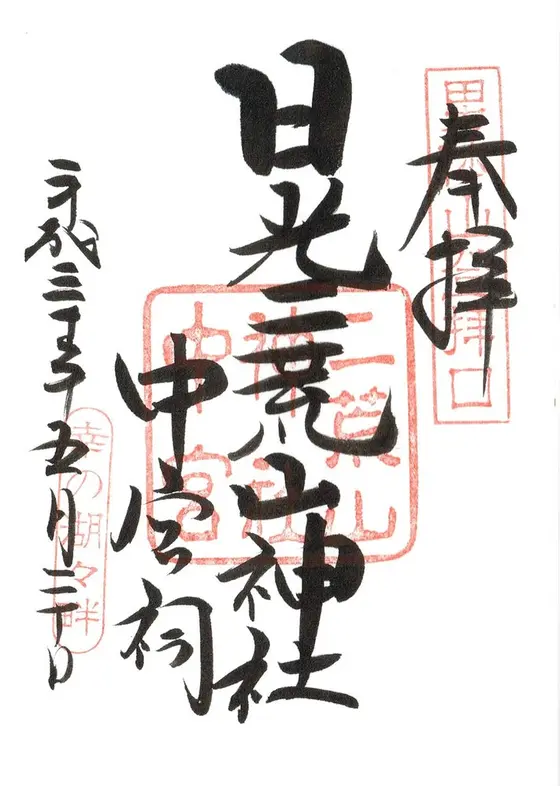 奉拝
男體山登拝口
日光二荒山神社
二荒山
神社
中宮
中宮祠
平成三十年五月二十日
幸の湖々畔